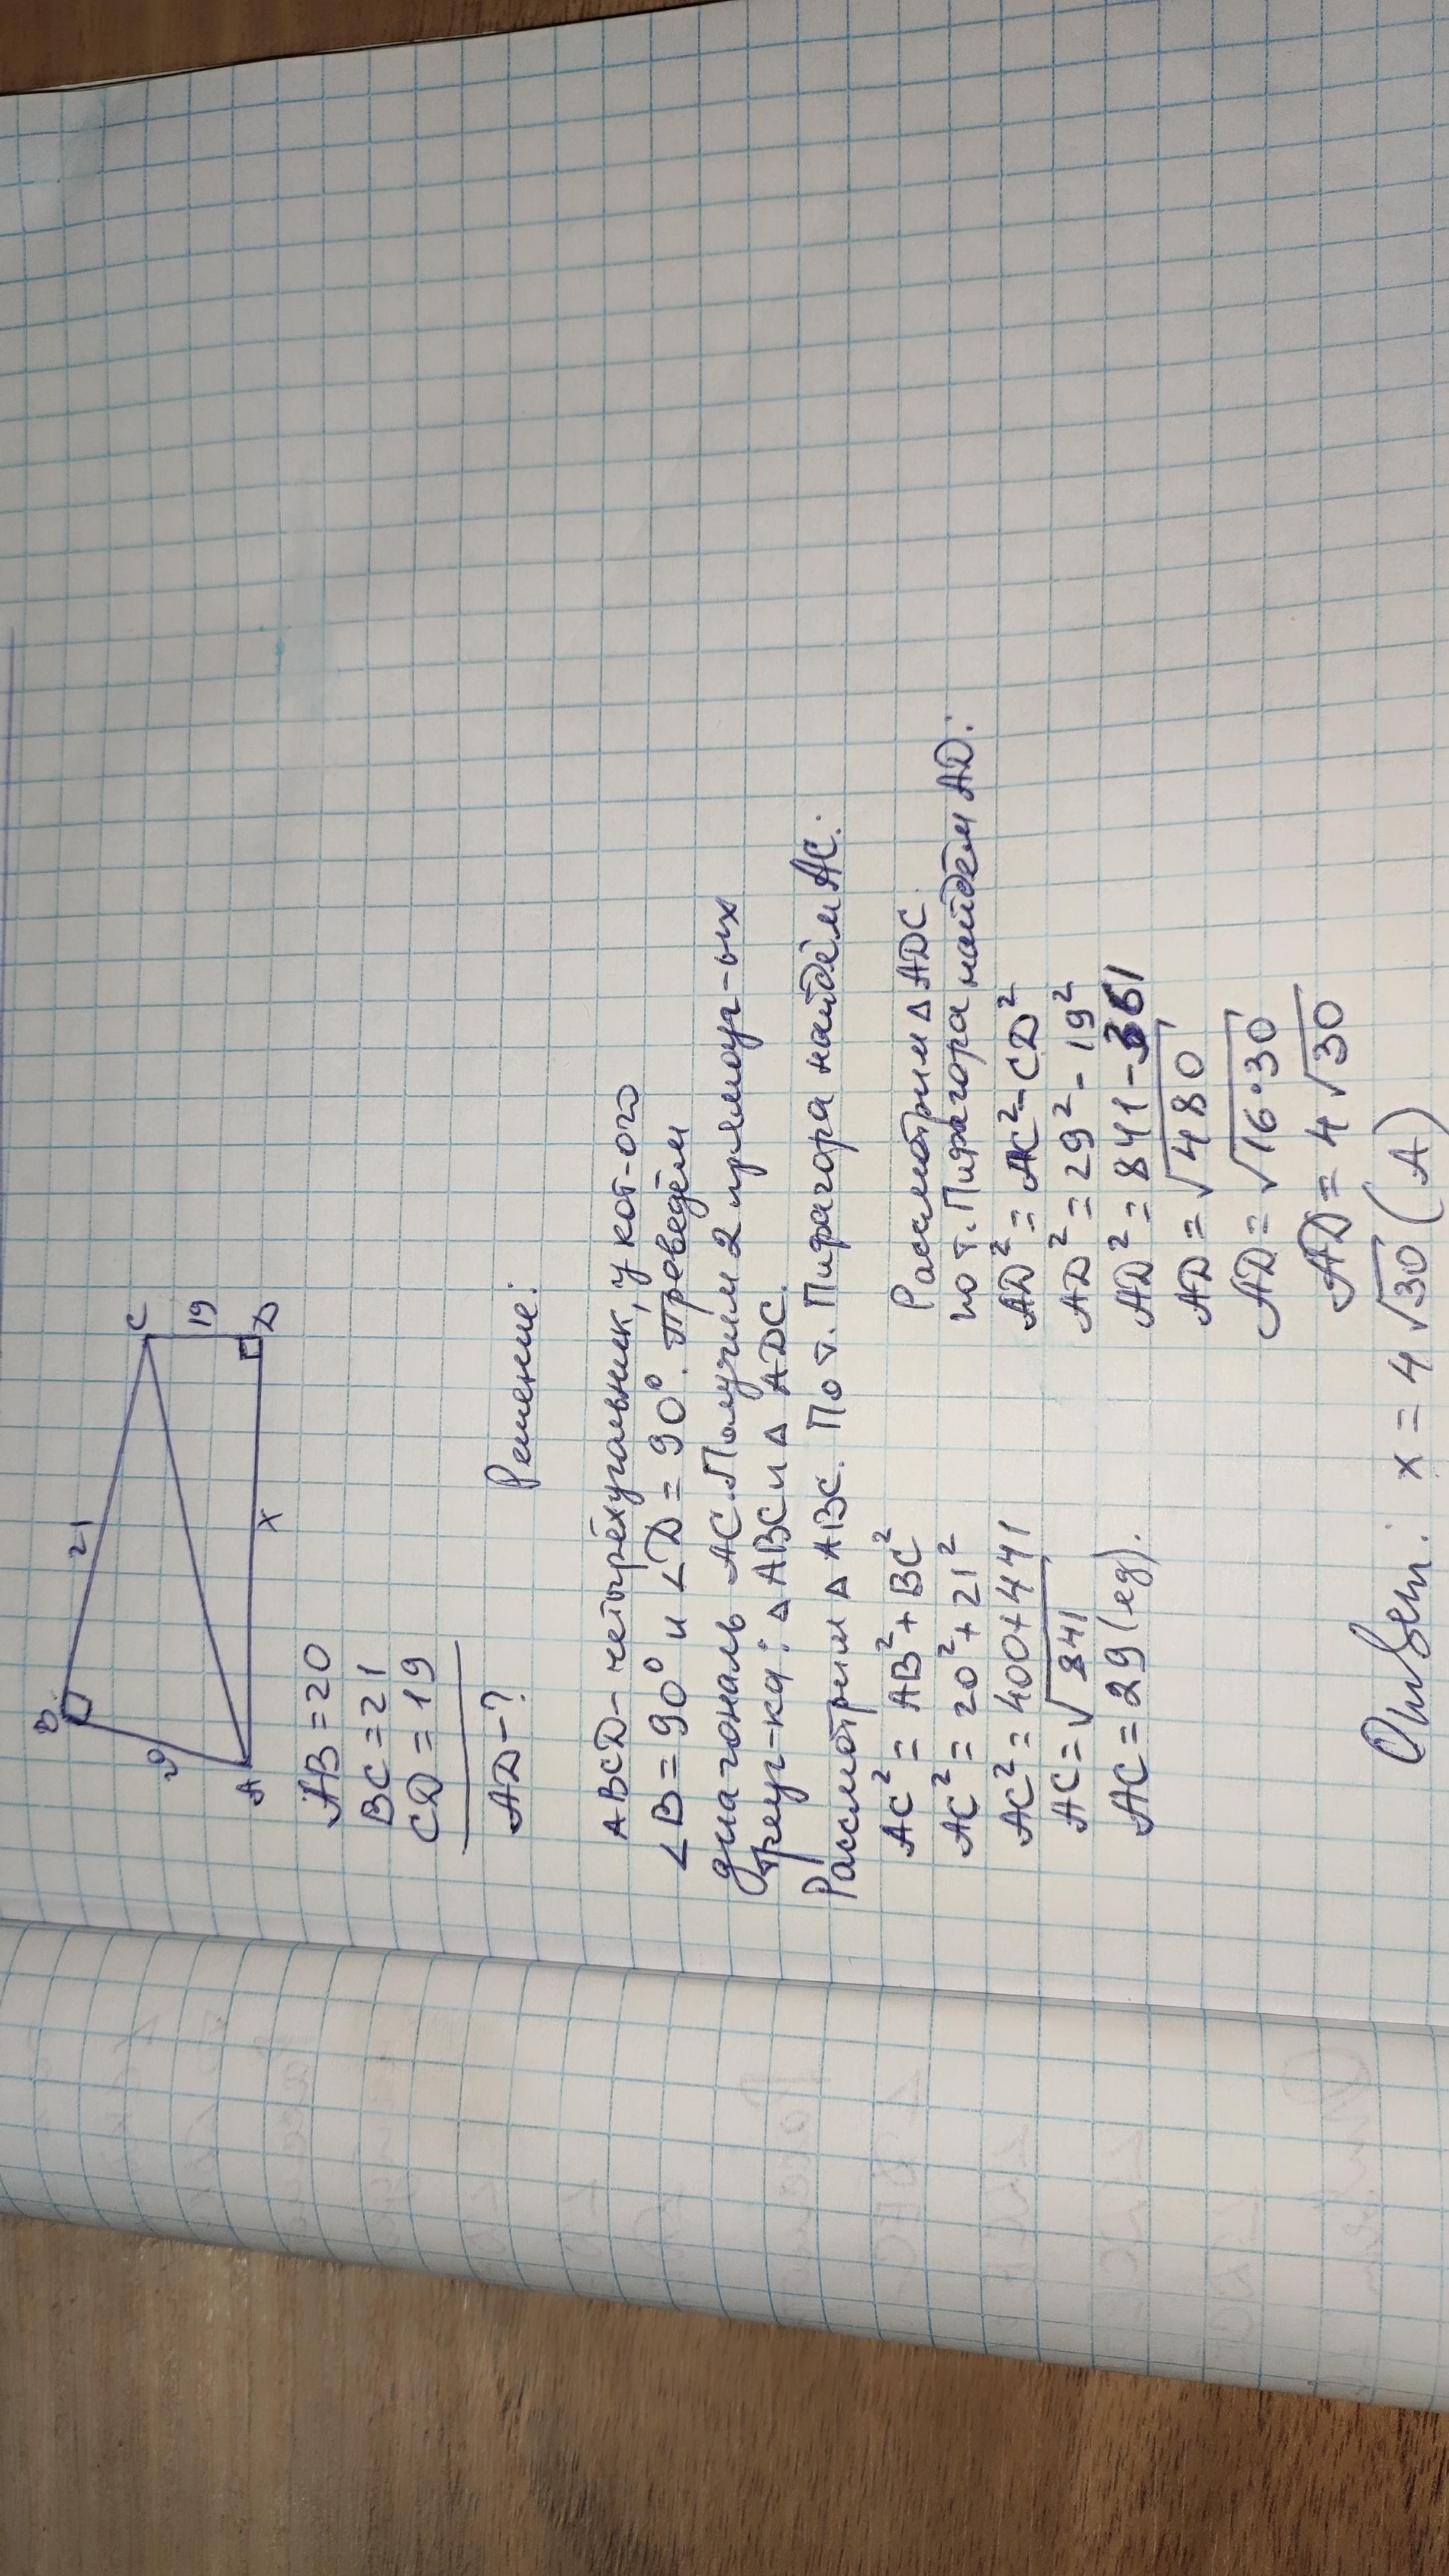 B
C
21
20
19
A
x
D
AB = 20
BC = 21
CD = 19
AD - ?
Решение:
ABCD - четырёхугольник, у кот-ого
∠B = 90° и ∠D = 90°. Проведём
диагональ AC. Получим 2 прямоуг-ых
треуг-ка: △ ABC и △ ADC.
Рассмотрим △ ABC. По т. Пифагора найдём AC:
AC² = AB² + BC²
AC² = 20² + 21²
AC² = 400 + 441
AC = √841
AC = 29 (ед).
Рассмотрим △ ADC
по т. Пифагора найдём AD:
AD² = AC² - CD²
AD² = 29² - 19²
AD² = 841 - 361
AD = √480
AD = √16·30
AD = 4√30
Ответ: x = 4√30 (A)